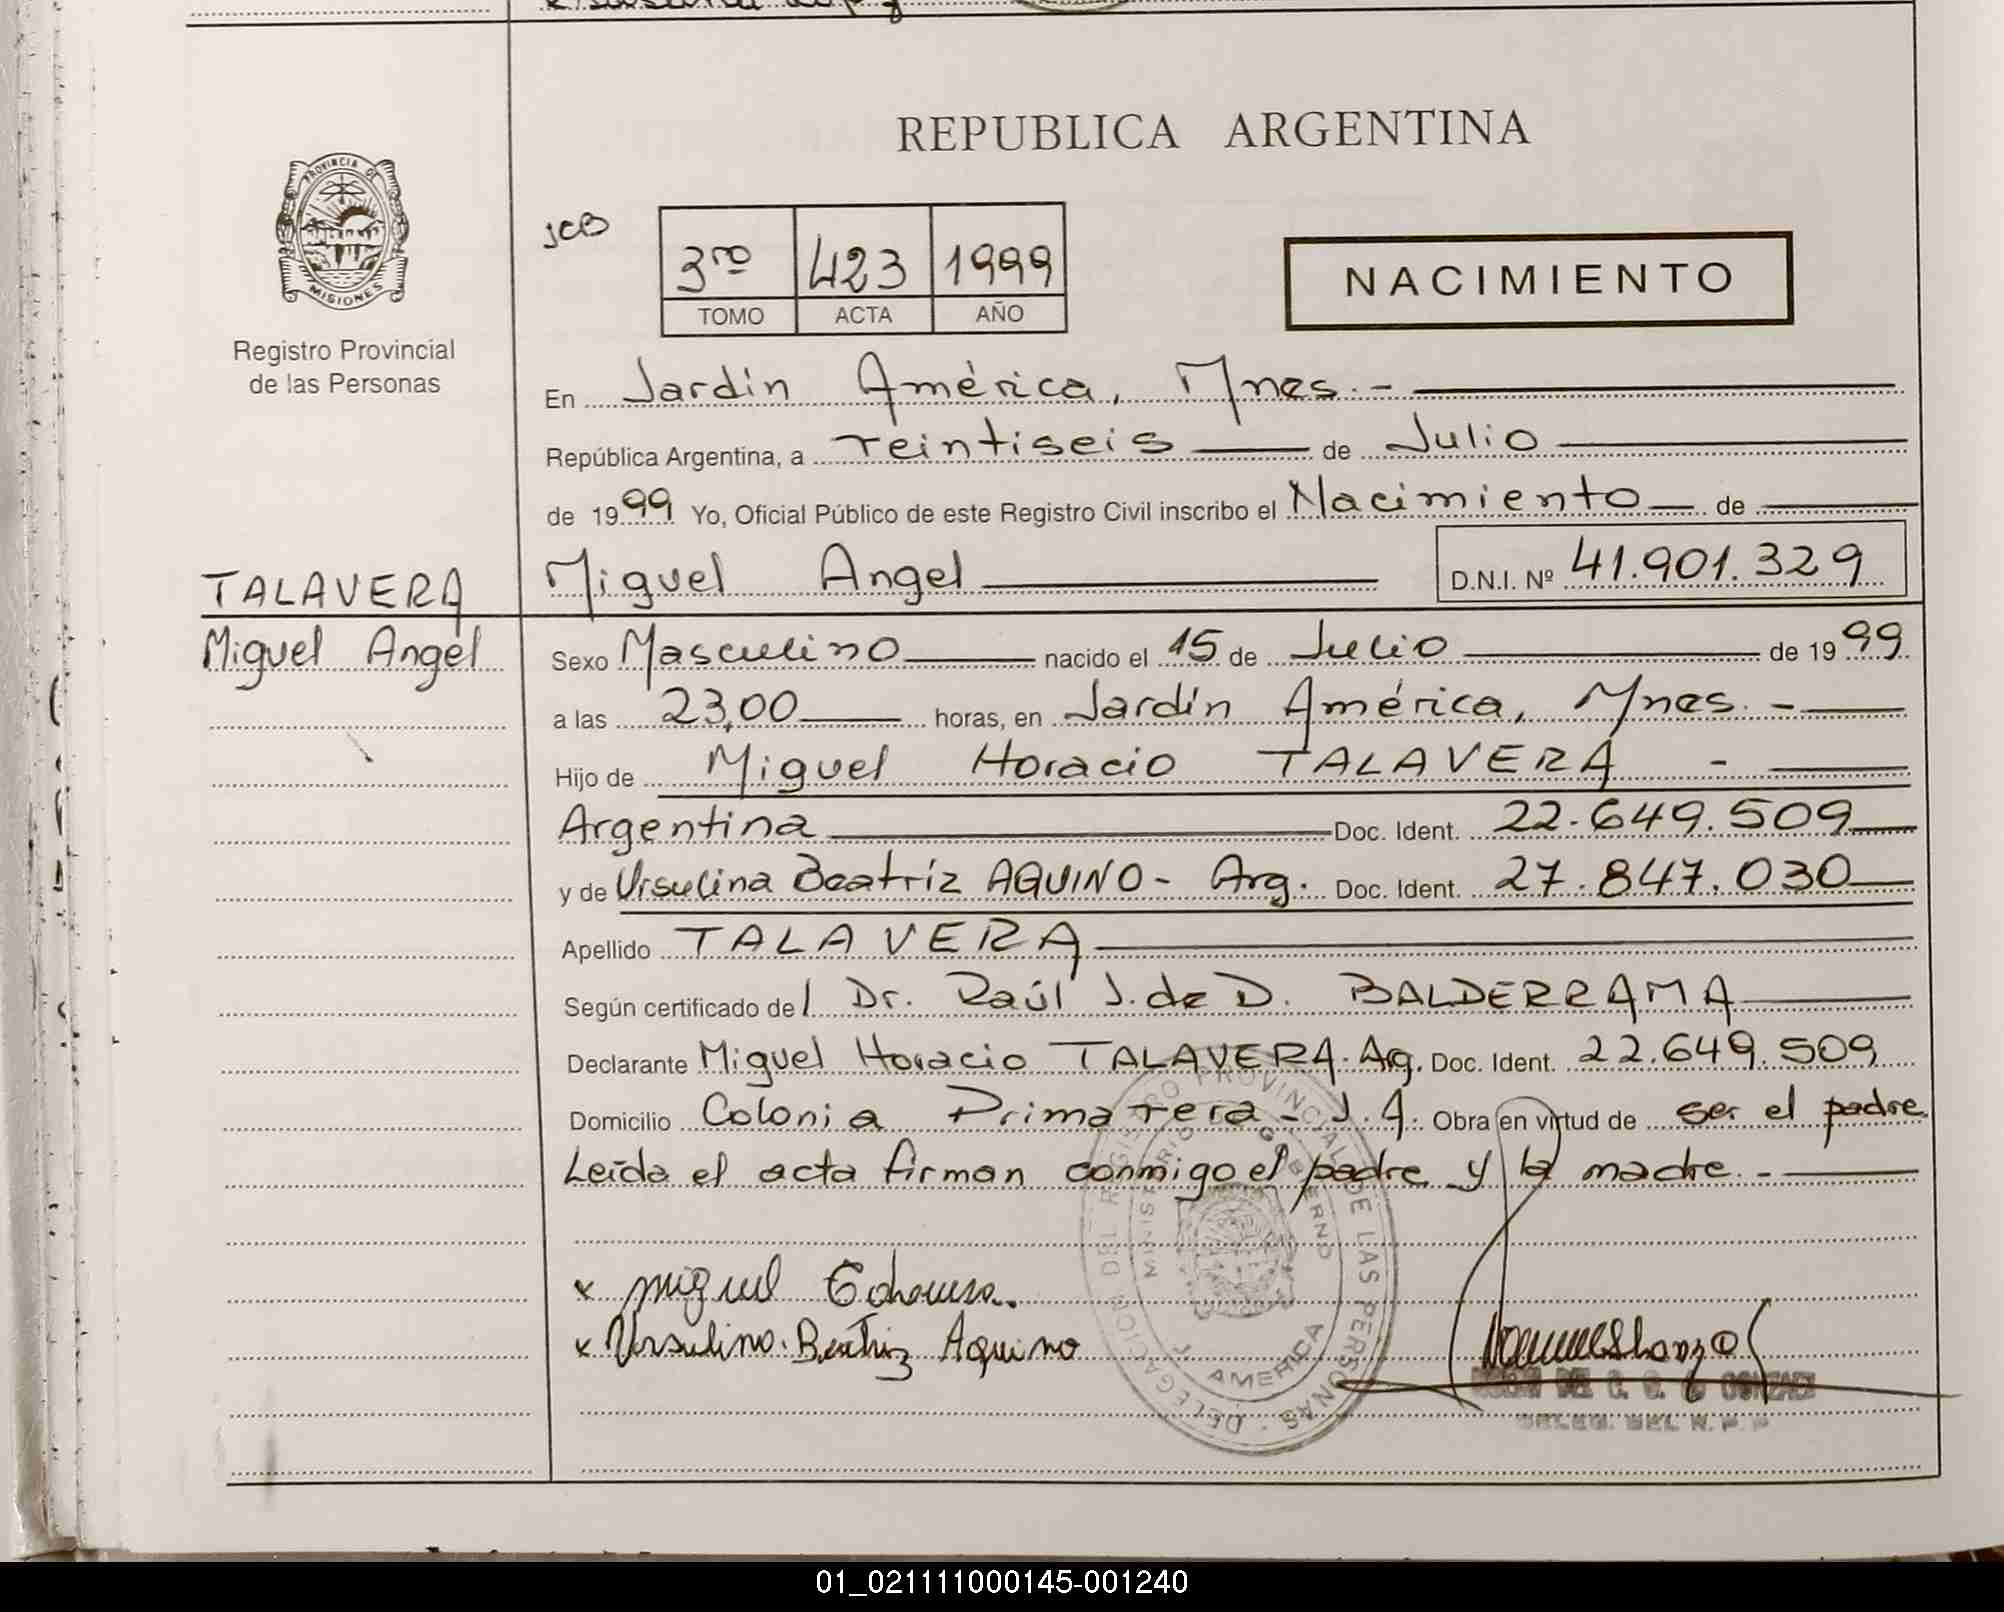 REPUBLICA ARGENTINA
PROVINCIA DE
MISIONES
Registro Provincial
de las Personas
JCB
3ro 423 1999
TOMO ACTA AÑO
NACIMIENTO
En Jardín América, Mnes.-
República Argentina, a Veintiseis de Julio
de 1999 Yo, Oficial Público de este Registro Civil inscribo el Nacimiento de
Miguel Angel D.N.I. Nº 41.901.329
TALAVERA
Miguel Angel
Sexo Masculino nacido el 15 de Julio de 1999
a las 23,00 horas, en Jardín América, Mnes.-
Hijo de Miguel Horacio TALAVERA -
Argentina Doc. Ident. 22.649.509
y de Ursulina Beatríz AQUINO- Arg. Doc. Ident. 27.847.030
Apellido TALAVERA
Según certificado del Dr. Raúl J. de D. BALDERRAMA
Declarante Miguel Horacio TALAVERA. Ag. Doc. Ident. 22.649.509
Domicilio Colonia Primavera - J. A. Obra en virtud de ser el padre
Leída el acta firman conmigo el padre y la madre.-
x miguel
x Ursulina Beatriz Aquino
DELEGACION DEL REGISTRO PROVINCIAL DE LAS PERSONAS
MINISTERIO GOBIERNO
J. AMERICA
01_021111000145-001240